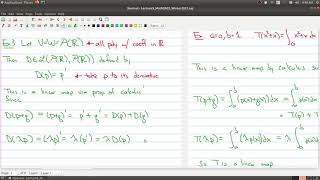 Ex 3 Let V=W=P(R) ← all poly w/ coeff in R
Then D∈L(P(R),P(R)) defined by
D(p)=p' ← take p to its derivative
This is a linear map via props of calculus
Since
D(p+q) = (p+q)' = p'+q' = D(p)+D(q)
D(λp) = (λp)' = λ(p') = λD(p)
Ex a=0, b=1 T(x²+x)=∫ x²+x dx
This is a linear map by calculus
T(p+q) = ∫ (p(x)+q(x))dx = ∫ p(x)
= T(p)
T(λp) = ∫ (λp(x))dx = λ∫
So T is a linear map.